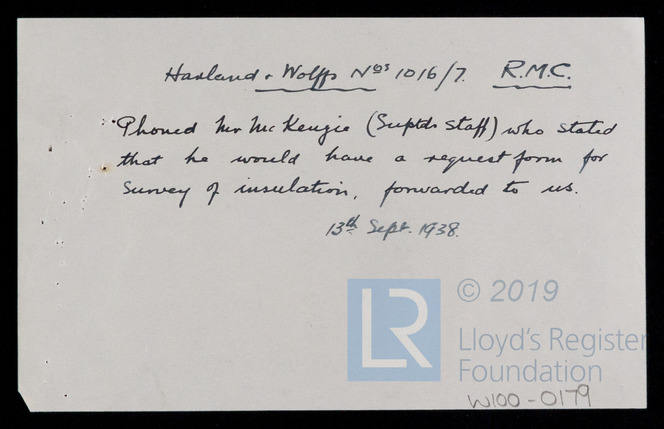 Harland & Wolffs Nos 1016/7. R.M.C.
Phoned Mr McKenzie (Suptds Staff) who stated
that he would have a request form for
survey of insulation, forwarded to us.
13th Sept. 1938.
LR
© 2019
Lloyd's Register
Foundation
W100-0179